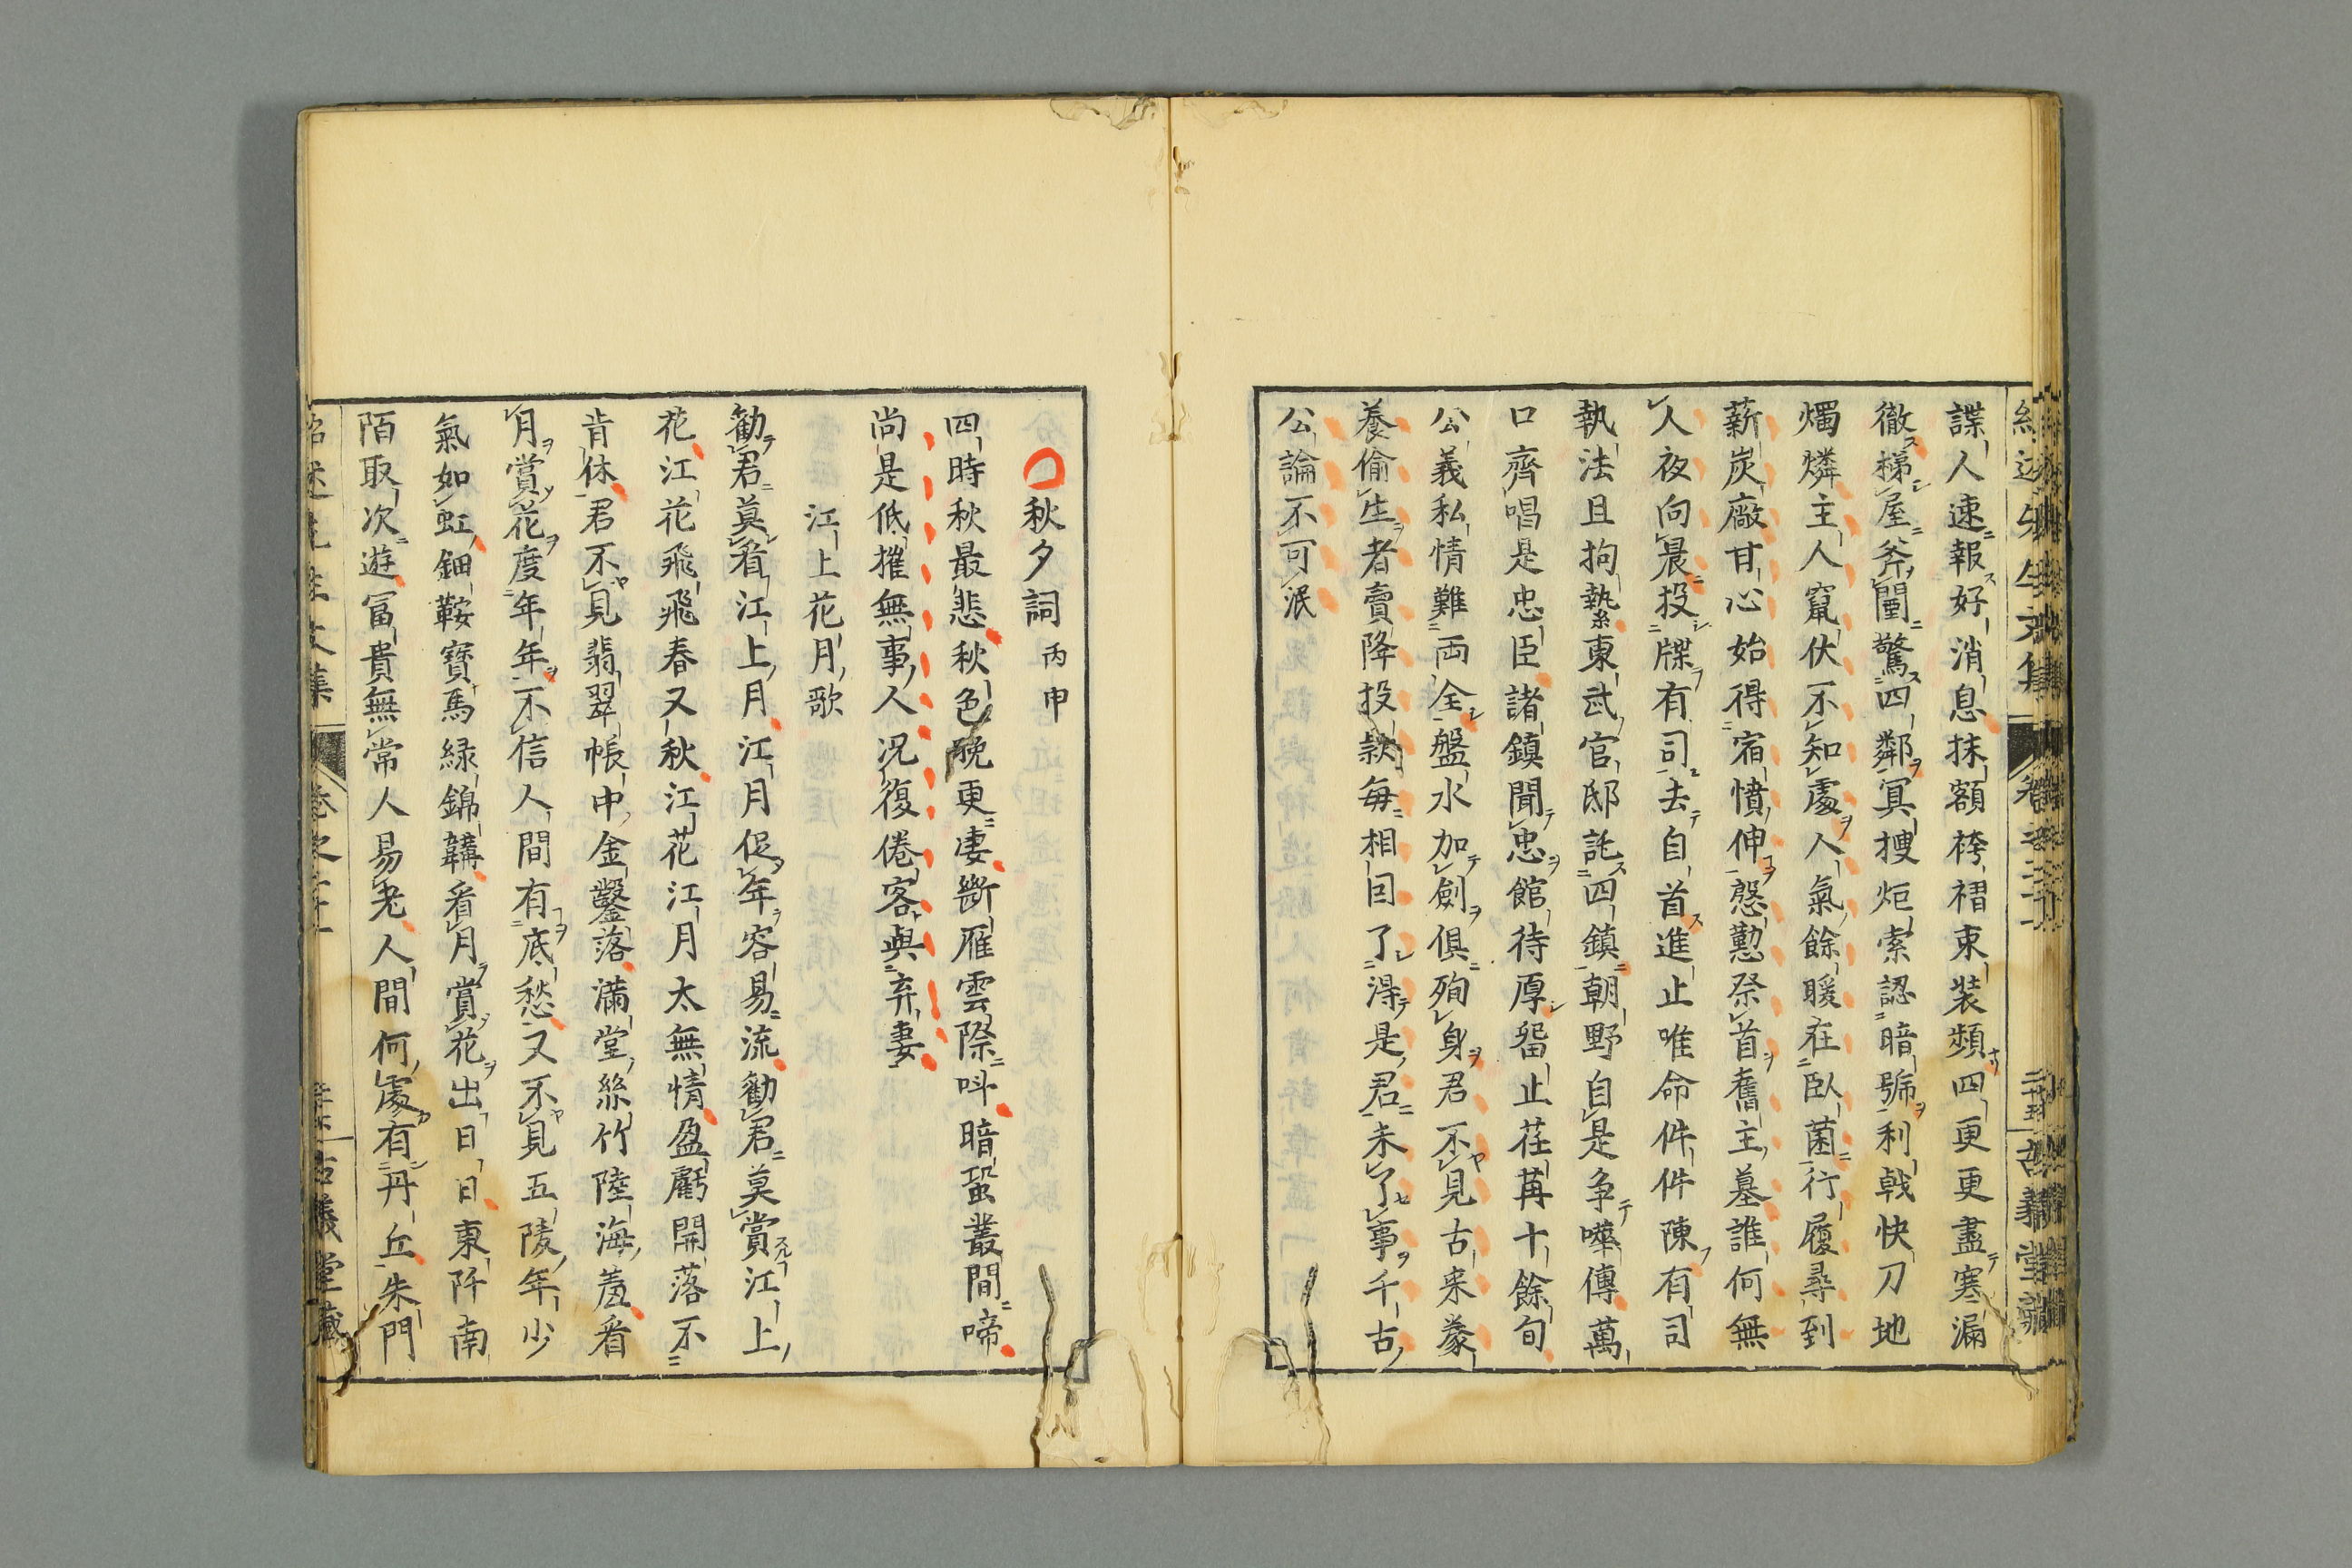 諜人速報好消息抹額袴褶束裝頻四更更盡寒漏
徹梯屋斧闔驚四鄰冥搜炬索認暗號利戟快刀地
燭燐主人竄伏不知處人氣餘暖在臥菌行履尋到
薪炭廠甘心始得宿憤伸慇懃祭首舊主墓誰何無
人夜向晨投牒有司去自首進止唯命件件陳有司
執法且拘縶東武官邸託四鎮朝野自是争嘩傳萬
口齊唱是忠臣諸鎮聞忠館待厚畱止荏苒十餘旬
公義私情難両全盤水加劍俱殉身君不見古来豢
養偷生者賣降投款毎相因了得是君未了事千古
公論不可泯
秋夕詞 丙申
四時秋最悲秋色晚更凄斷雁雲際呌暗蛩叢間啼
尚是低摧無事人况復倦客與弃妻
江上花月歌
勸君莫看江上月江月促年容易流勸君莫賞江上
花江花飛飛春又秋江花江月太無情盈虧開落不
肯休君不見翡翠帳中金鑿落滿堂絲竹陸海羞看
月賞花度年年不信人間有底愁又不見五陵年少
氣如虹鈿鞍寶馬緑錦韝看月賞花出日日東阡南
陌取次遊冨貴無常人易老人間何處有丹丘朱門